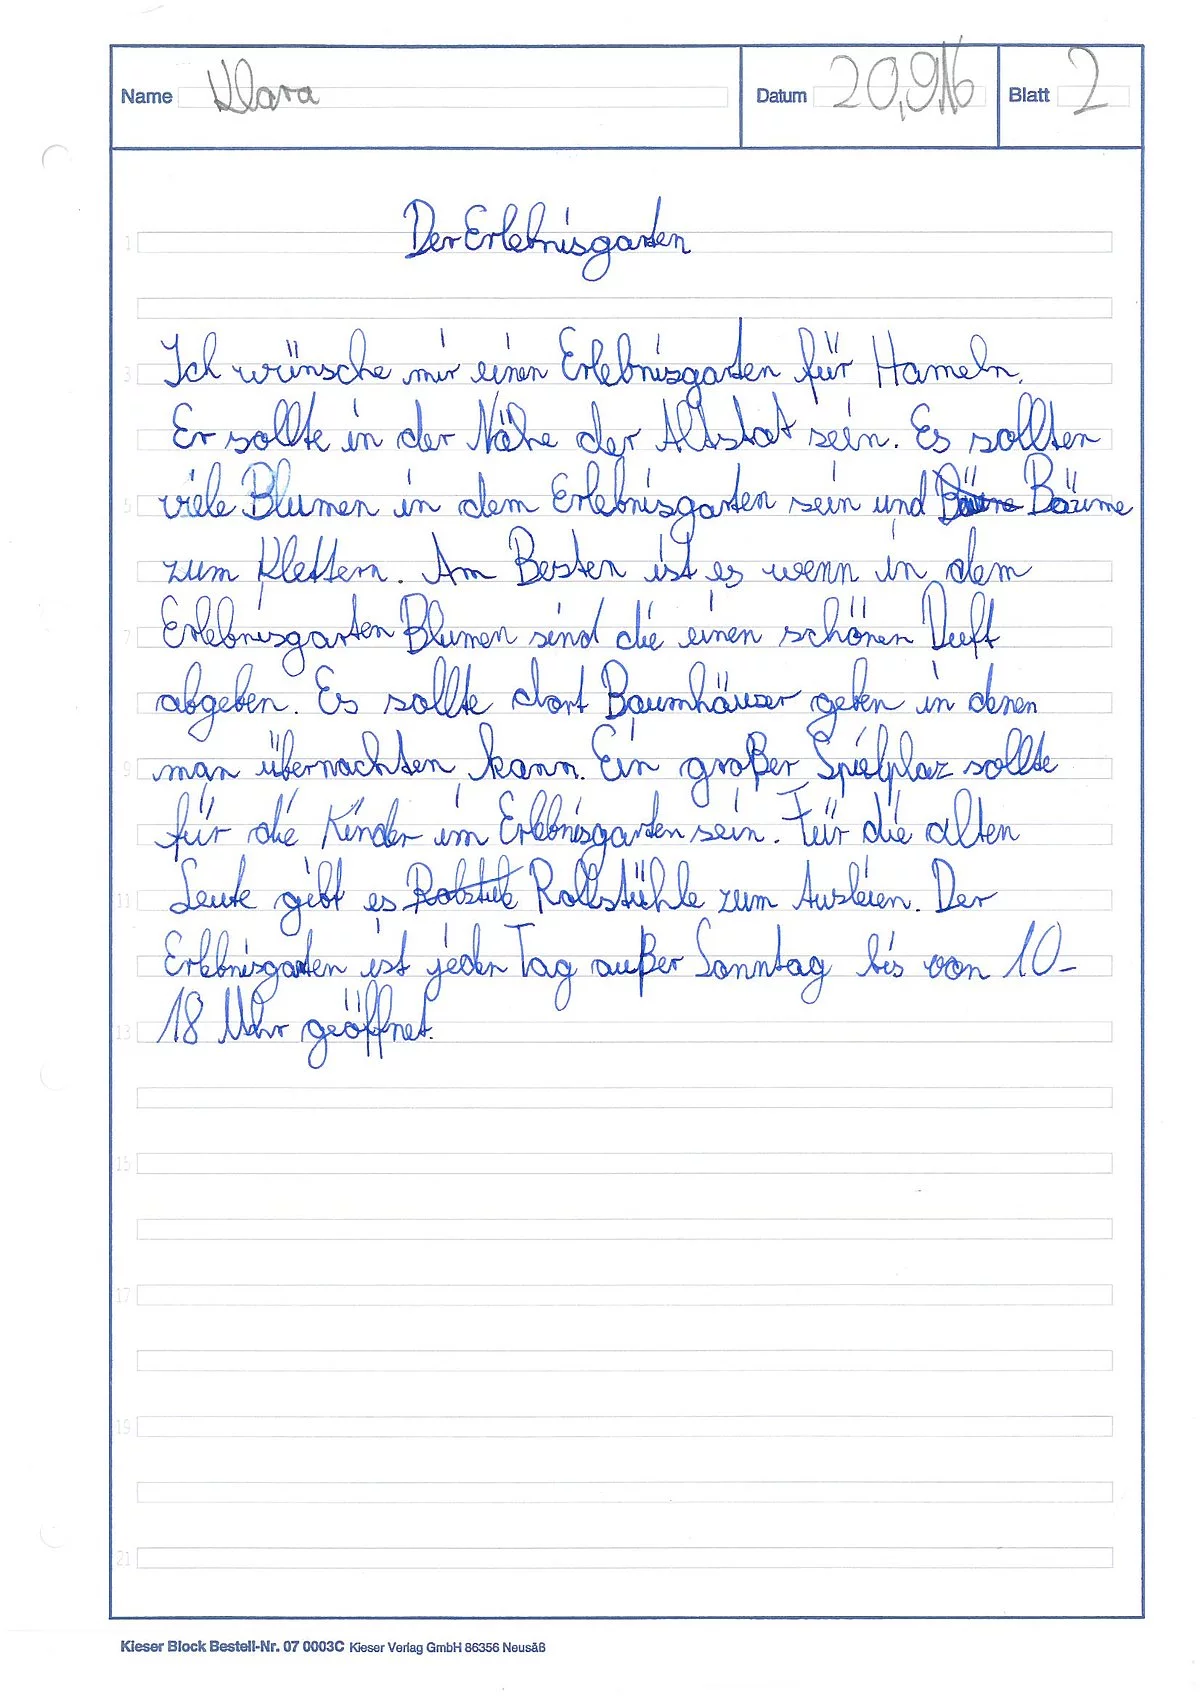 Name Klara Datum 20,9.16 Blatt 2
Der Erlebnisgarten
1
3 Ich wünsche mir einen Erlebnisgarten für Hameln.
Er sollte in der Nähe der Altstat sein. Es sollten
5 viele Blumen in dem Erlebnisgarten sein und Bäume Bäüme
zum Klettern. Am Besten ist es wenn in dem
7 Erlebnisgarten Blumen sind die einen schönen Duft
abgeben. Es sollte dort Baumhäuser geben in denen
9 man übernachten kann. Ein großer Spielplaz sollte
für die Kinder im Erlebnisgarten sein. Für die alten
11 Leute gibt es Rolstule Rollstühle zum Ausleien. Der
Erlebnisgarten ist jeden Tag außer Sonntag bis von 10-
13 18 Uhr geöffnet.
15
17
19
21
Kieser Block Bestell-Nr. 07 0003C Kieser Verlag GmbH 86356 Neusäß